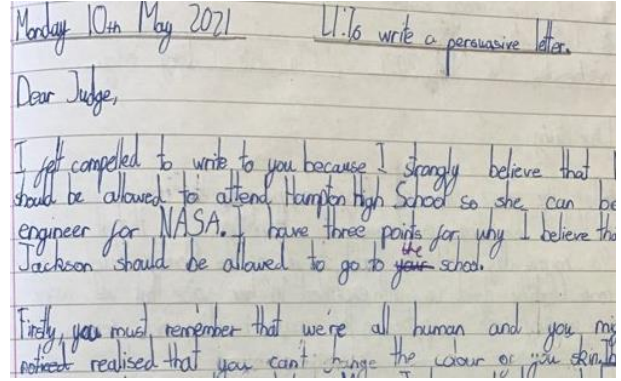 Monday 10th May 2021 LI: To write a persuasive letter.
Dear Judge,
I felt compelled to write to you because I strongly believe that
should be allowed to attend Hampton High School so she can be
engineer for NASA. I have three points for why I believe tha
Jackson should be allowed to go to your the school.
Firstly, you must remember that we're all human and you mi
noticed realised that you can't change the colour of you skin,